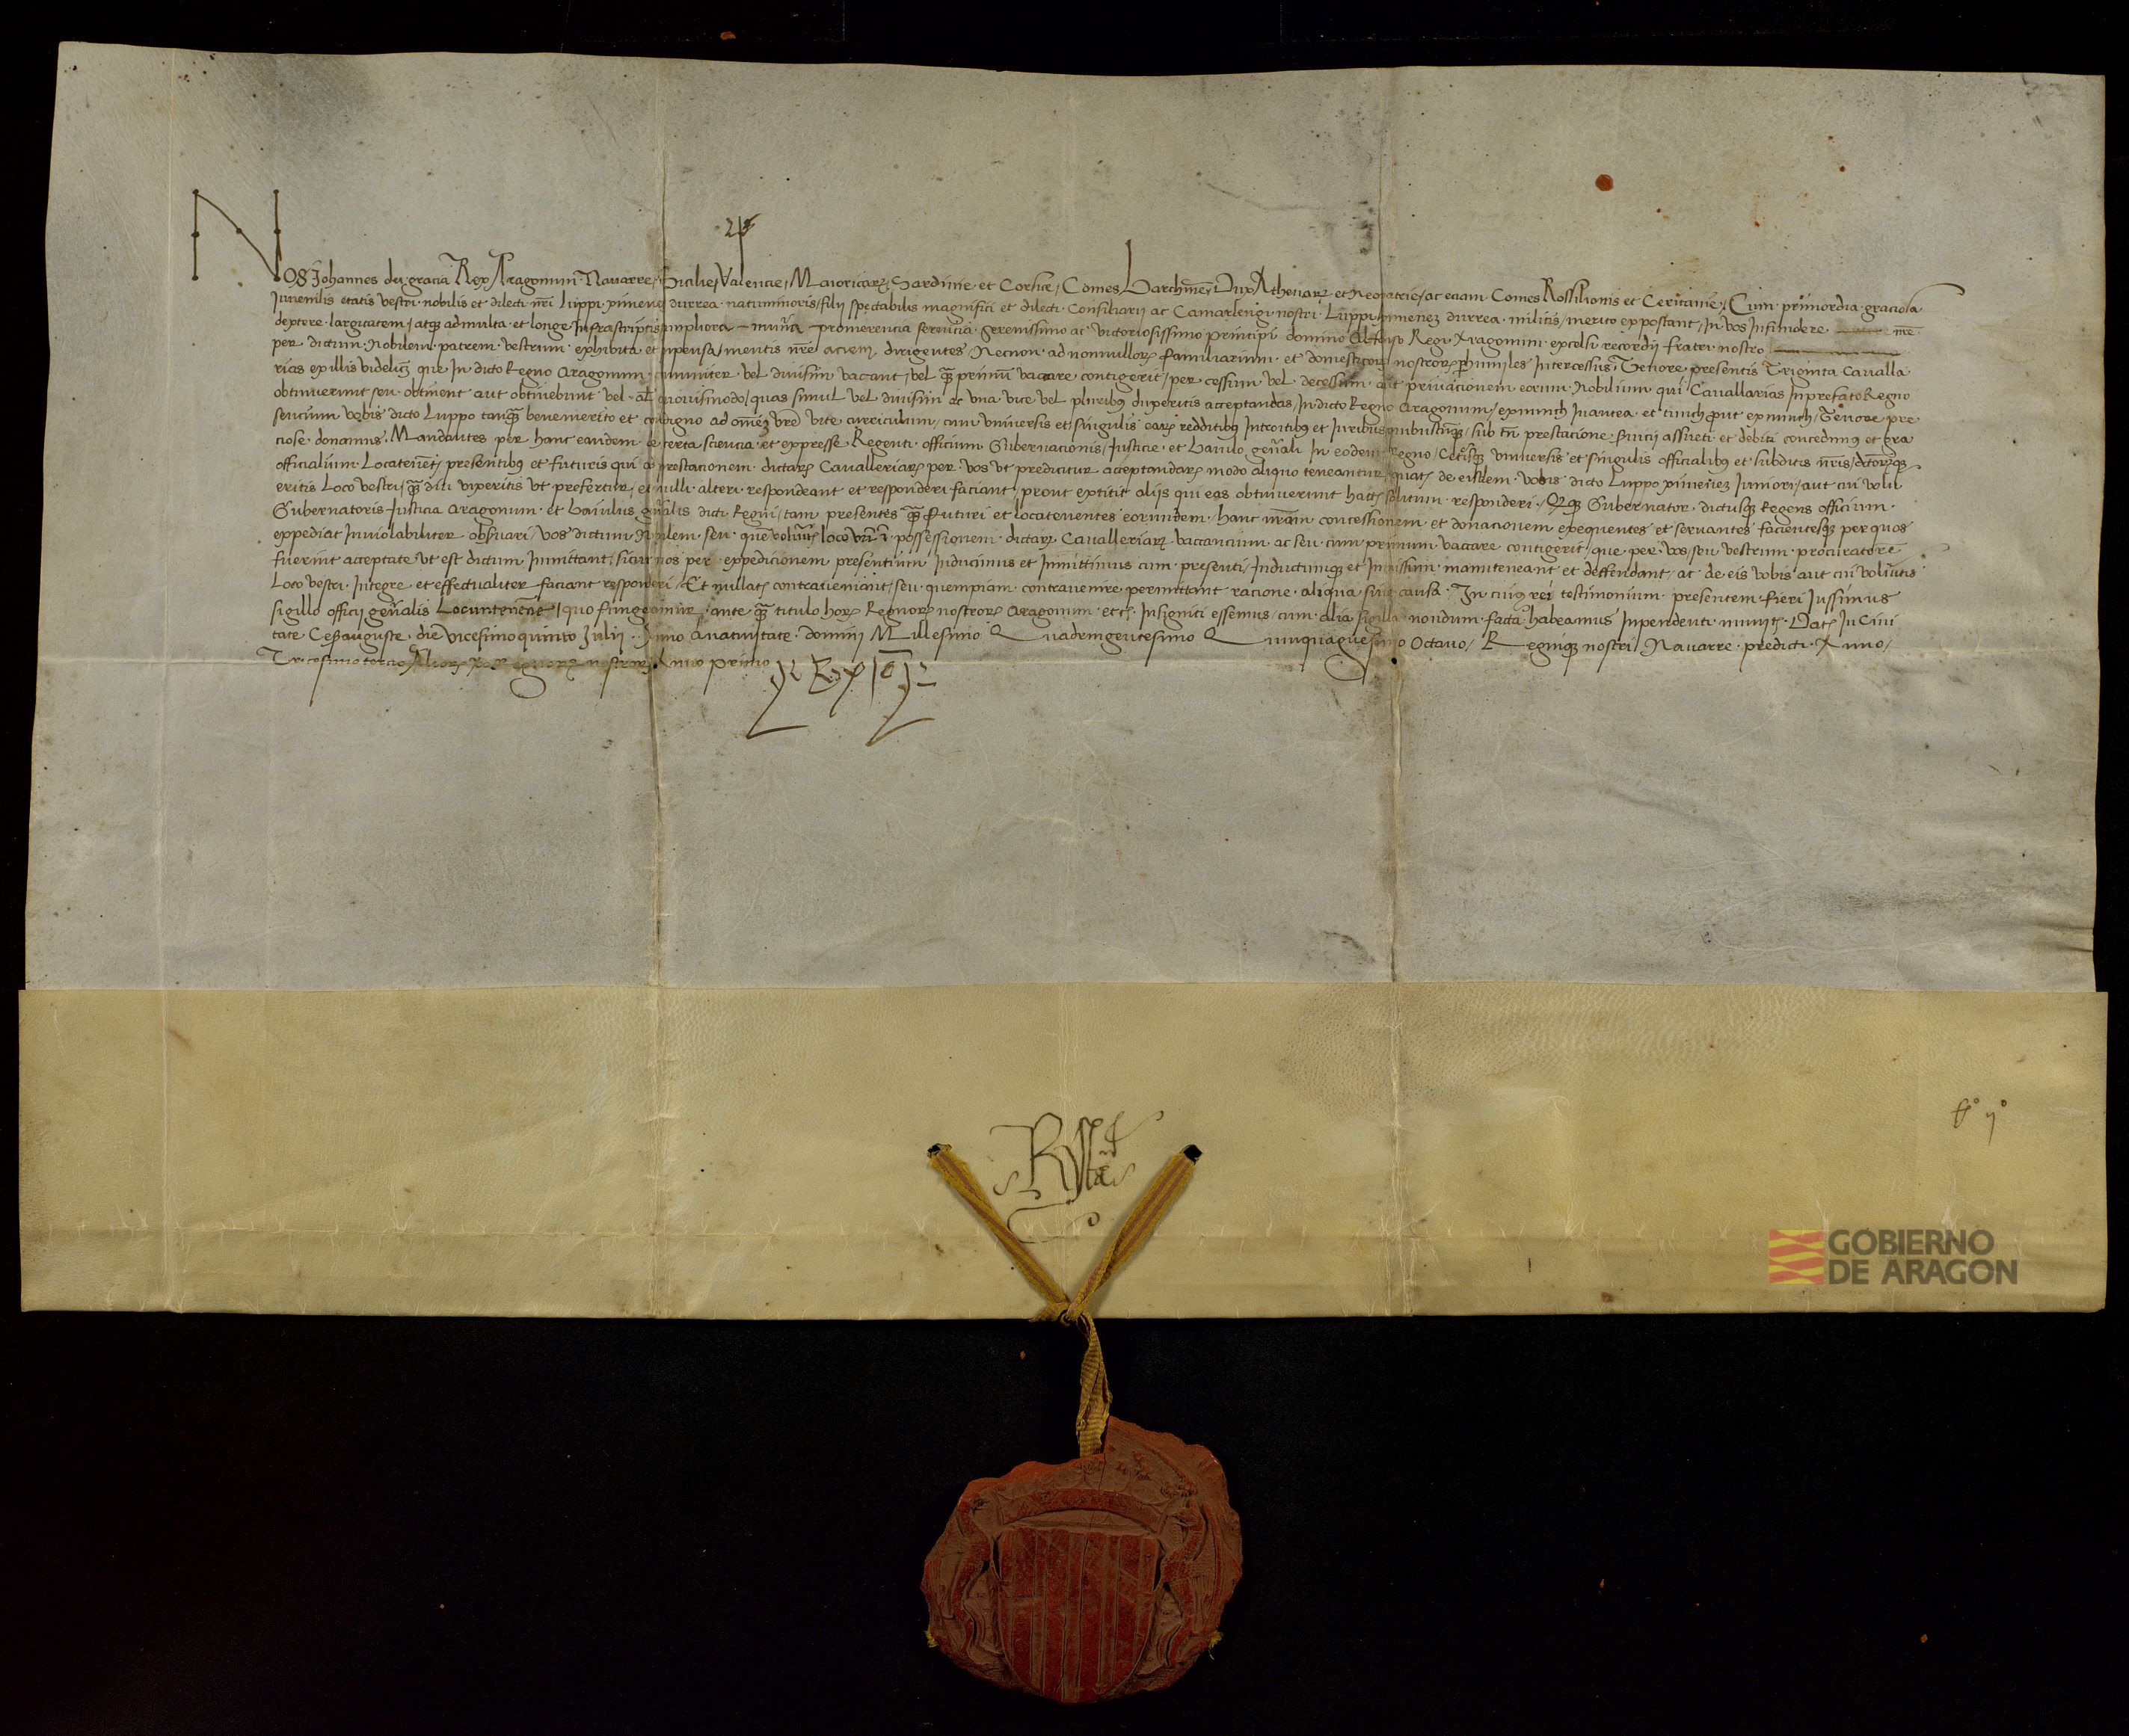 Nos Johannes dei gracia Rex Aragonum Navarre Sicilie Valencie Maioricarum Sardinie et Corsice Comes Barchinone Dux Athenarum et Neopatrie ac eciam Comes Rossilionis et Ceritanie Cum primordia graciosa
Iuvenilis etatis vestri nobilis et dilecti nri Luppi ximenez durrea natu minoris filii spectabilis magnifici et dilecti Consiliarii ac Camarlengi nostri Luppi ximenez durrea militis merito expostant In vos Infundere nre
dextere largitatem atque ad multa et longe Infrascriptis ampliora promerencia servicia Serenissimo ac victoriosissimo principi domino Alfonso Regi Aragonum excelsi recordii fratri nostro
per dictum Nobilem patrem vestrum exhibita et mentis nre aciem dirigentes Necnon ad nonnullorum familiarium et domesticorum nostrorum Intercessus Tenore presentis Triginta Cavalla
rias ex illis videlicet que In dicto Regno Aragonum communiter vel divisim vacant vel quam primum vacare contigerit per cessum vel decessum aut privacionem eorum Nobilium qui Cavallarias In prefato Regno
obtinuerunt seu obtinent aut obtinebunt vel als quovismodo quas simul vel divisim ac una vice vel pluribus duxeritis acceptandas In dicto Regno Aragonum exnunch Inantea et tunch prout exnunch Tenore pre
sencium vobis dicto Luppo tanquam benemerito et condigno ad omnem vre vite curriculum cum universis et singulis earum redditibus Introitibus et Iuribus quibuscumque sub tn prestacione servicii assueti et debiti concedimus et gra
ciose donamus Mandantes per hanc eandem de certa sciencia et expresse Regenti officium Gubernacionis Justicie et baiulo generali In eodem Regno Ceterisque universis et singulis officialibus et subditis nris dictorumque
officialium Locatenentibus presentibus et futuris qui ad prestacionem dictarum Cavalleriarum per vos ut predicitur acceptandarum modo aliquo teneantur quatenus de eisdem vobis dicto Luppo ximenez Iuniori aut cui volu
eritis Loco vestri quam diu vixeritis ut prefertur et nulli alteri respondeant et responderi faciant prout extitit aliis qui eas obtinuerunt hactenus solitum responderi Quique Gubernator dictusque Regens officium
Gubernatoris Justicia Aragonum et baiulus gnalis dicti Regni tam presentes quam Futuri et locatenentes eorundem hanc nram concessionem et donacionem exequentes et servantes facientesque per quos
expediat Inviolabiliter observari vos dictum Nobilem seu quem volueritis loco vri In possessionem dictarum Cavalleriarum vaccancium ac seu cum primum vaccare contigerit que per vos seu vestrum procuratorem
fuerint acceptate ut est dictum Inmittant sicut nos per expedicionem presentium Inducimus et Inmittimus cum presenti Inductumque et Inmissum manuteneant et deffendant ac de eis vobis aut cui volueritis
Loco vestri Integre et effectualiter faciant responderi Et nullatenus contraveniant seu quempiam contravenire permittant racione aliqua sive causa In cuius rei testimonium presentem fieri Iussimus
sigillo officii generalis Locumtenentie quo fungebamur ante quam titulo horum Regnorum nostrorum Aragonum etc Insigniti essemus cum alia sigilla nondum facta habeamus Inpendenti munitam Datum In Civi
tate Cesarauguste die vicesimo quinto Julii Anno A nativitate domini Millesimo Quadringentesimo Quinquagesimo Octavo Regnique nostri Navarre predicti Anno
Tricesimo tercio Aliorum vero Regnorum nostrorum Anno primo
Rex Jo
Rta
GOBIERNO
DE ARAGON